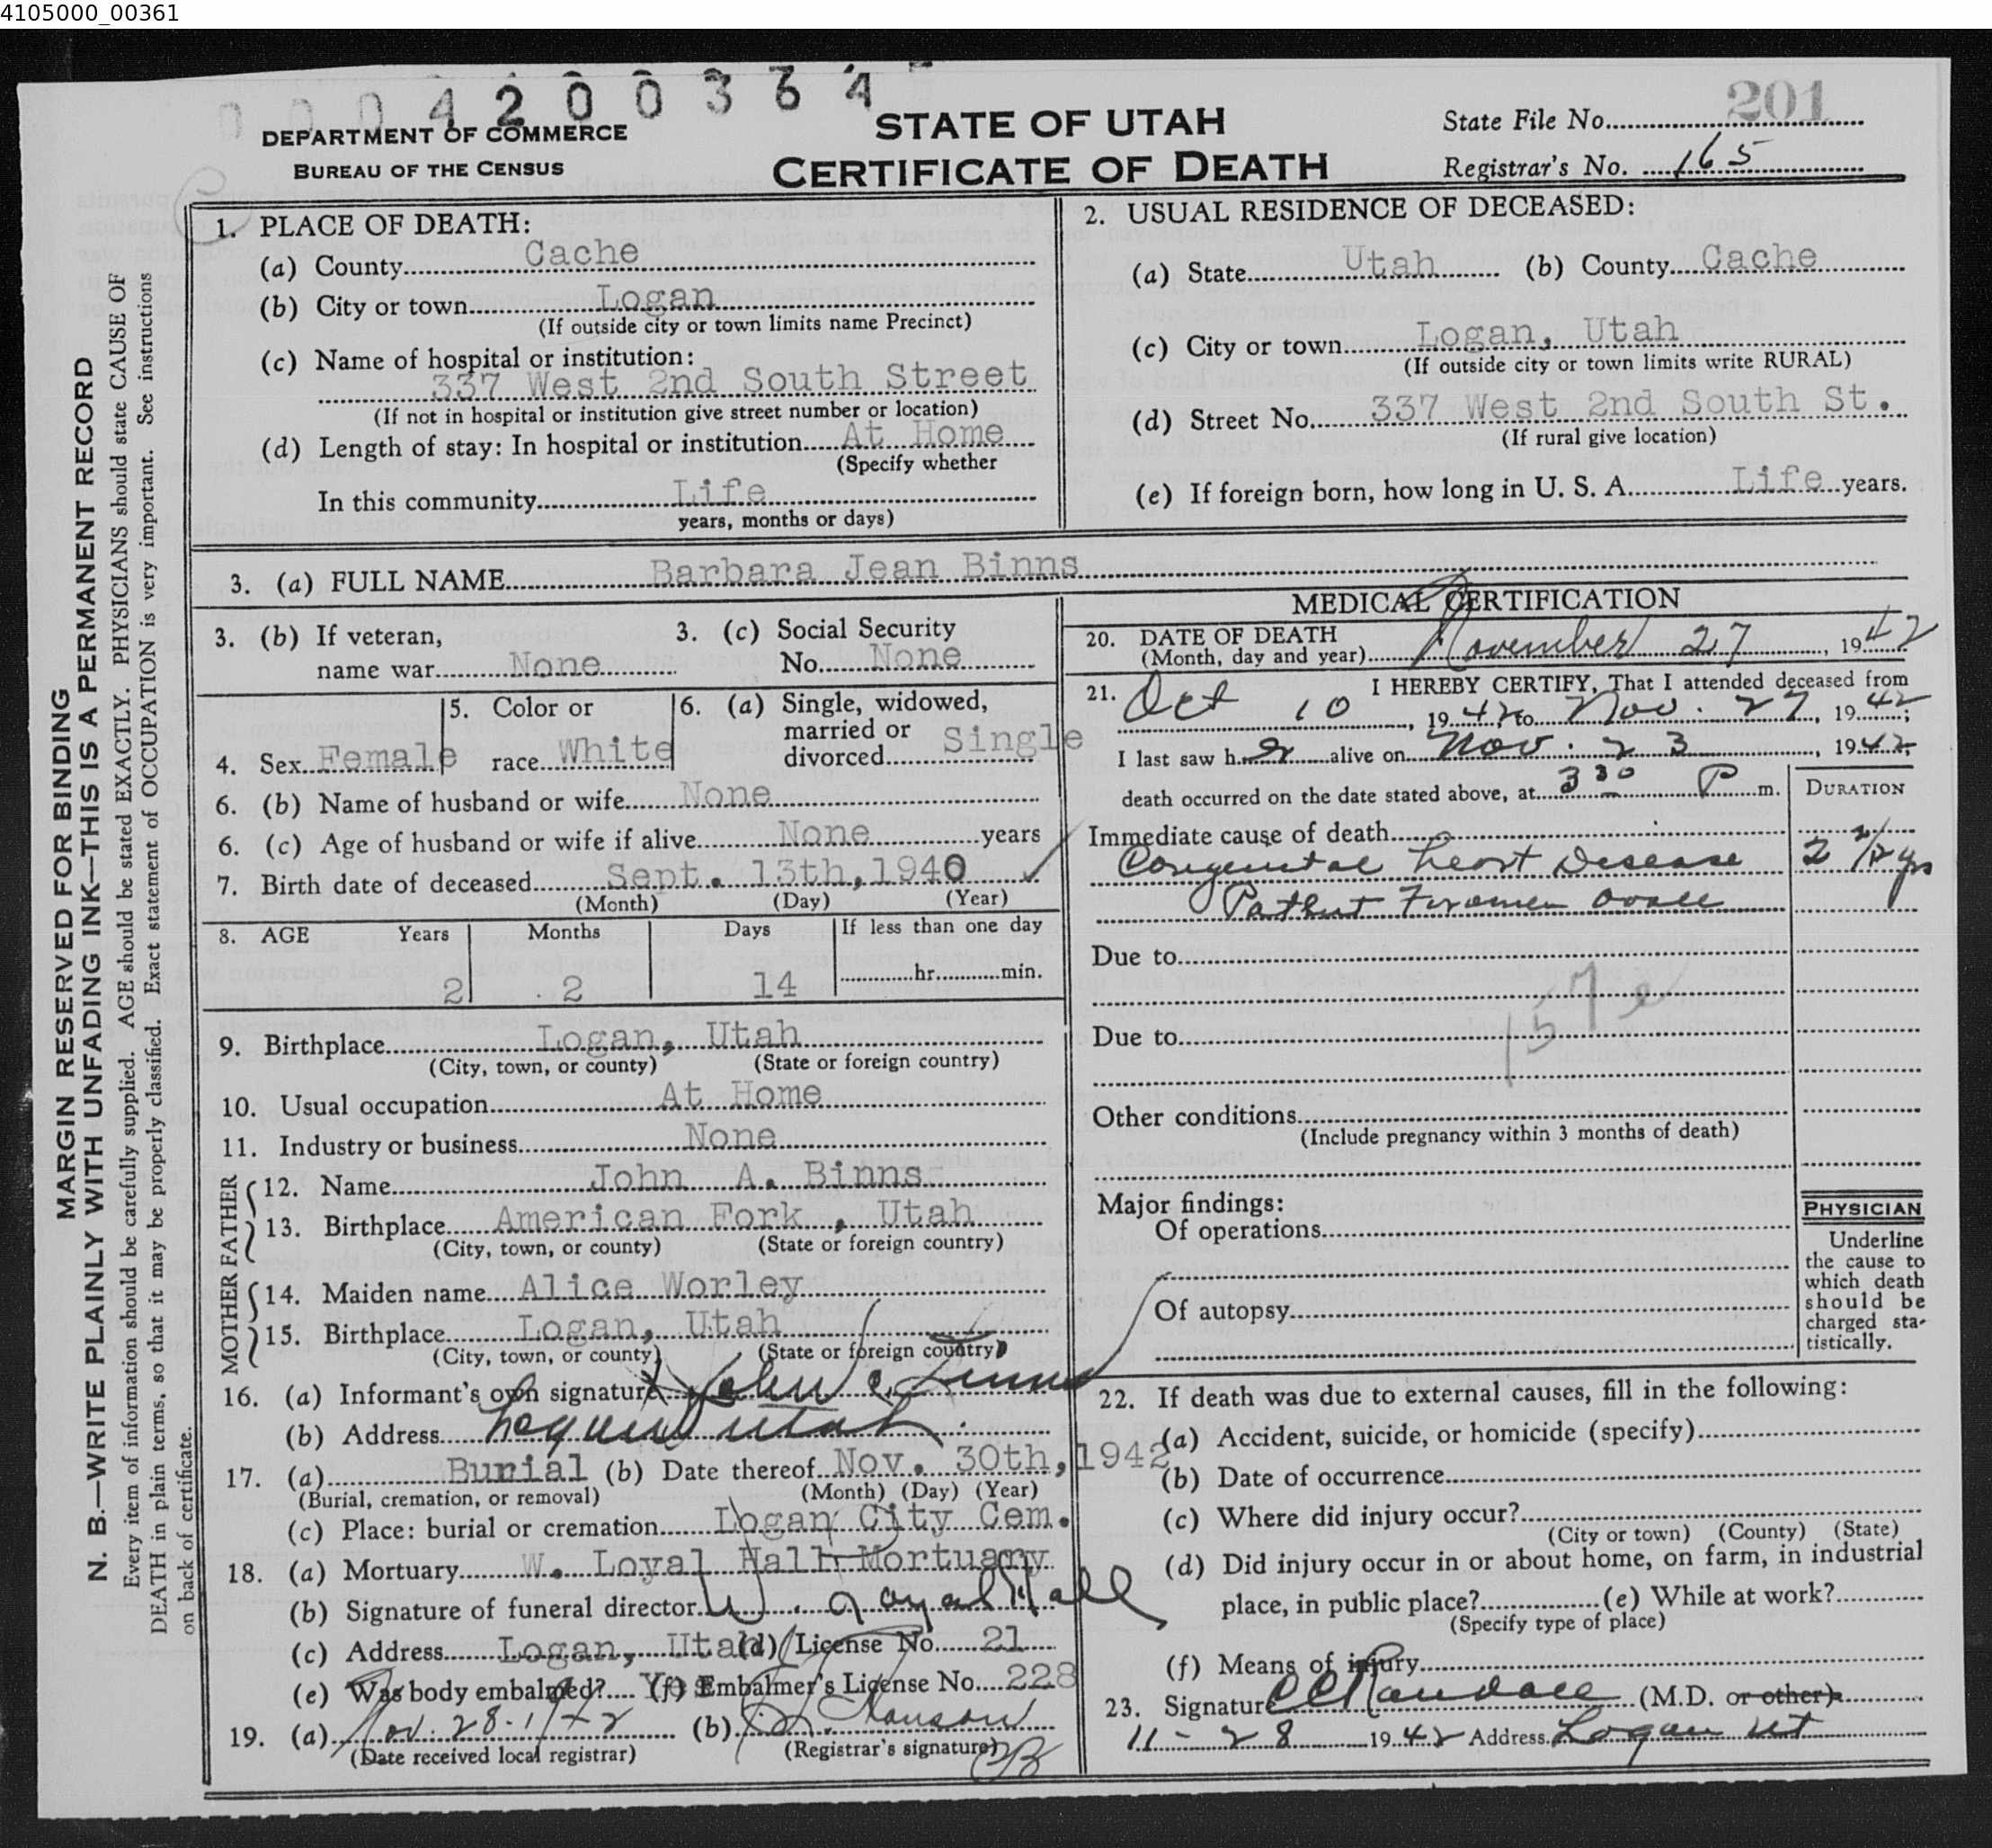 4105000_00361
0004200364
DEPARTMENT OF COMMERCE
BUREAU OF THE CENSUS
STATE OF UTAH
CERTIFICATE OF DEATH
State File No. 201
Registrar's No. 165
MARGIN RESERVED FOR BINDING
N. B.—WRITE PLAINLY WITH UNFADING INK—THIS IS A PERMANENT RECORD
Every item of information should be carefully supplied. AGE should be stated EXACTLY. PHYSICIANS should state CAUSE OF
DEATH in plain terms, so that it may be properly classified. Exact statement of OCCUPATION is very important. See instructions
on back of certificate.
1. PLACE OF DEATH:
(a) County Cache
(b) City or town Logan
(If outside city or town limits name Precinct)
(c) Name of hospital or institution:
337 West 2nd South Street
(If not in hospital or institution give street number or location)
(d) Length of stay: In hospital or institution At Home
(Specify whether
In this community Life
years, months or days)
2. USUAL RESIDENCE OF DECEASED:
(a) State Utah (b) County Cache
(c) City or town Logan, Utah
(If outside city or town limits write RURAL)
(d) Street No. 337 West 2nd South St.
(If rural give location)
(e) If foreign born, how long in U. S. A. Life years.
3. (a) FULL NAME Barbara Jean Binns
3. (b) If veteran,
name war None
3. (c) Social Security
No. None
4. Sex Female
5. Color or
race White
6. (a) Single, widowed,
married or
divorced Single
6. (b) Name of husband or wife None
6. (c) Age of husband or wife if alive None years
7. Birth date of deceased Sept. 13th, 1940
(Month) (Day) (Year)
8. AGE Years Months Days If less than one day
2 2 14 hr. min.
9. Birthplace Logan, Utah
(City, town, or county) (State or foreign country)
10. Usual occupation At Home
11. Industry or business None
FATHER
12. Name John A. Binns
13. Birthplace American Fork, Utah
(City, town, or county) (State or foreign country)
MOTHER
14. Maiden name Alice Worley
15. Birthplace Logan, Utah
(City, town, or county) (State or foreign country)
16. (a) Informant's own signature John Binns
(b) Address Logan Utah
17. (a) Burial (b) Date thereof Nov. 30th, 1942
(Burial, cremation, or removal) (Month) (Day) (Year)
(c) Place: burial or cremation Logan City Cem.
18. (a) Mortuary W. Loyal Hall Mortuary
(b) Signature of funeral director W. Loyal Hall
(c) Address Logan, Utah (d) License No. 21
(e) Was body embalmed? Yes (f) Embalmer's License No. 228
19. (a) Nov. 28. 1942 (b)
(Date received local registrar) (Registrar's signature)
MEDICAL CERTIFICATION
20. DATE OF DEATH
(Month, day and year) November 27, 1942
21. I HEREBY CERTIFY, That I attended deceased from
Oct 10, 1942 to Nov. 27, 1942;
I last saw her alive on Nov. 23, 1942
death occurred on the date stated above, at 3 30 P m.
DURATION
Immediate cause of death
Congenital heart Disease 2 2/12 yrs
Patent Foramen Ovale
Due to
157e
Due to
Other conditions
(Include pregnancy within 3 months of death)
Major findings:
Of operations
Of autopsy
PHYSICIAN
Underline
the cause to
which death
should be
charged sta-
tistically.
22. If death was due to external causes, fill in the following:
(a) Accident, suicide, or homicide (specify)
(b) Date of occurrence
(c) Where did injury occur?
(City or town) (County) (State)
(d) Did injury occur in or about home, on farm, in industrial
place, in public place? (e) While at work?
(Specify type of place)
(f) Means of injury
23. Signature C C Randall (M.D. or other)
11-28 1942 Address Logan Ut